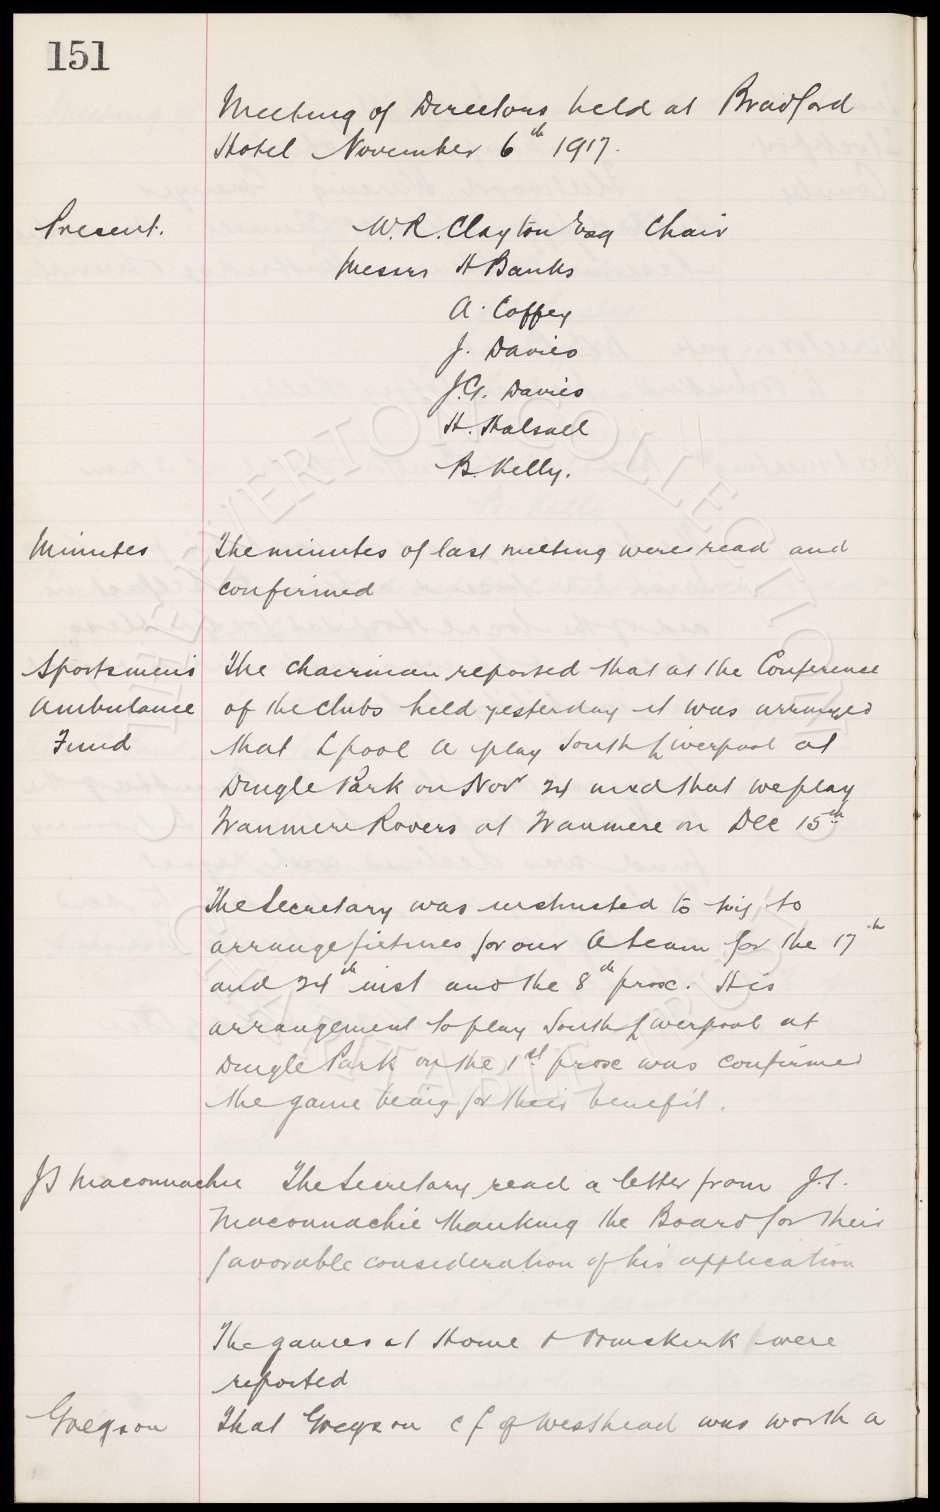 151
Meeting of Directors held at Bradford
Hotel November 6th 1917.
Present. W.R. Clayton Esq Chair
Messrs H Banks
A. Coffey
J. Davies
J.G. Davies
H. Halsall
B. Kelly.
Minutes The minutes of last meeting were read and
confirmed
Sportsmen's The chairman reported that at the Conference
Ambulance of the clubs held yesterday it was arranged
Fund that Lpool A play South Liverpool at
Dingle Park on Novr 24 and that we play
Tranmere Rovers at Tranmere on Dec 15th
The Secretary was instructed to try to
arrange fixtures for our A team for the 17th
and 24th inst and the 8th prox. His
arrangement to play South Liverpool at
Dingle Park on the 1st prox was confirmed
the game being for their benefit.
JS Maconnachie The Secretary read a letter from J.S.
Maconnachie thanking the Board for their
favorable consideration of his application
The games at Home & Ormskirk were
reported
Gregson That Gregson c f of Westhead was worth a
EVERTON COLLECTION
CHARITABLE TRUST